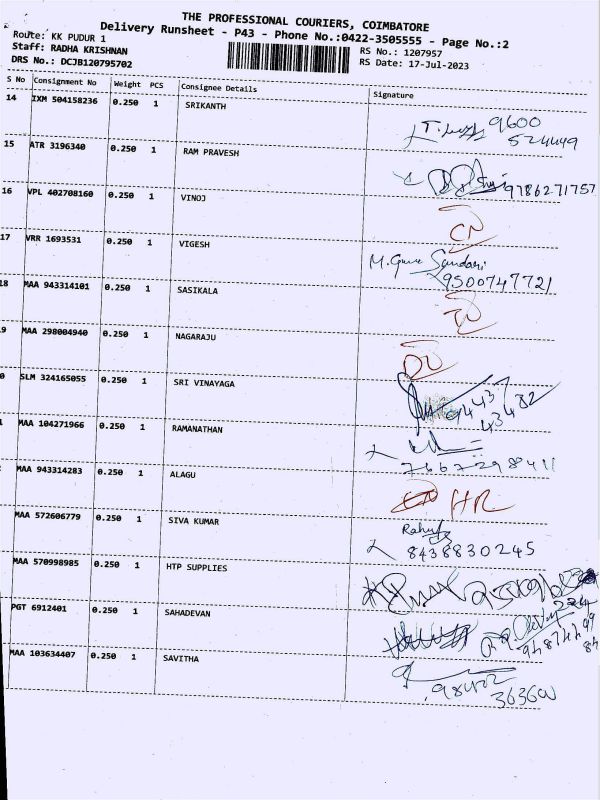 THE PROFESSIONAL COURIERS, COIMBATORE
Delivery Runsheet - P43 - Phone No.:0422-3505555 - Page No.:2
Route: KK PUDUR 1
Staff: RADHA KRISHNAN
DRS No.: DCJB120795702
RS No.: 1207957
RS Date: 17-Jul-2023
S No Consignment No Weight PCS Consignee Details Signature
14 IXM 504158236 0.250 1 SRIKANTH
9600
524449
15 ATR 3196340 0.250 1 RAM PRAVESH
9786271757
16 VPL 402708160 0.250 1 VINOJ
CN
17 VRR 1693531 0.250 1 VIGESH
M. Guna Sundari
9500747721
18 MAA 943314101 0.250 1 SASIKALA
9 MAA 298004940 0.250 1 NAGARAJU
DL
0 SLM 324165055 0.250 1 SRI VINAYAGA
94437
43482
1 MAA 104271966 0.250 1 RAMANATHAN
7667298411
MAA 943314283 0.250 1 ALAGU
HR
MAA 572606779 0.250 1 SIVA KUMAR
Rahul
8438830245
MAA 570998985 0.250 1 HTP SUPPLIES
PGT 6912401 0.250 1 SAHADEVAN
MAA 103634407 0.250 1 SAVITHA
98422
36360